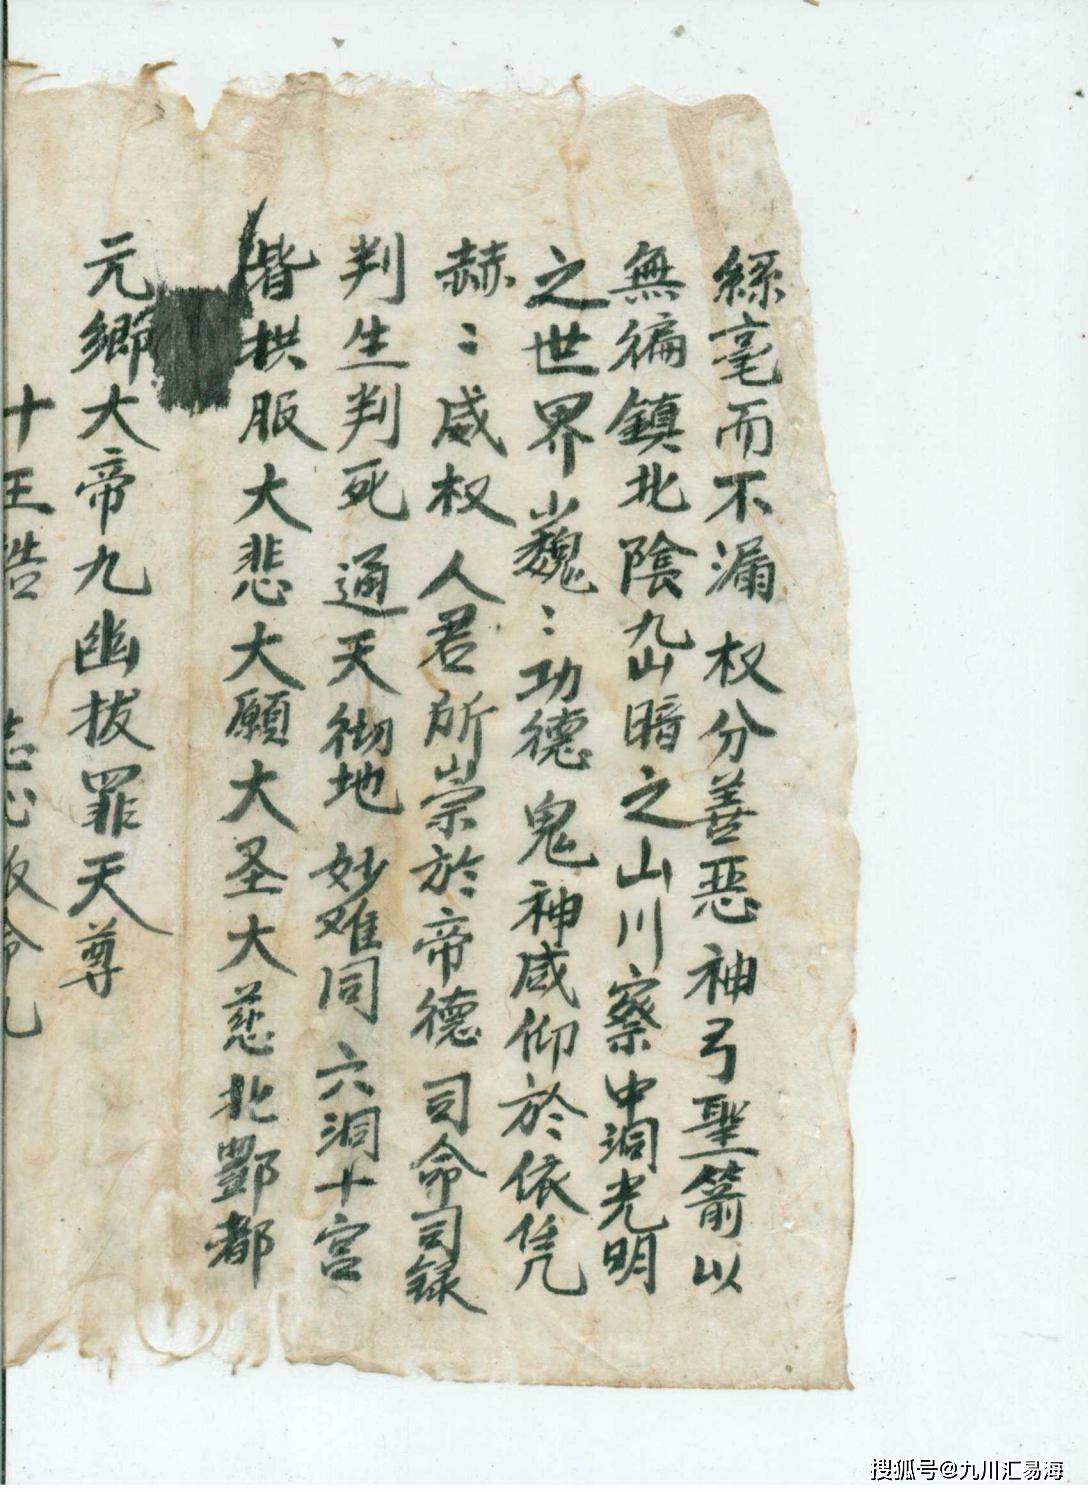 絲毫而不漏 权分善惡 神弓聖箭以
無徧鎮北陰九山暗之山川察中洞光明
之世界巍〻功德 鬼神咸仰於依凭
赫〻威权 人君所崇於帝德 司命司録
判生判死 通天彻地 妙难同 六洞十宫
皆拱服 大悲大願大圣大慈北酆都
元卿大帝九幽拔罪天尊
十王誥 志心
搜狐号@九川汇易海